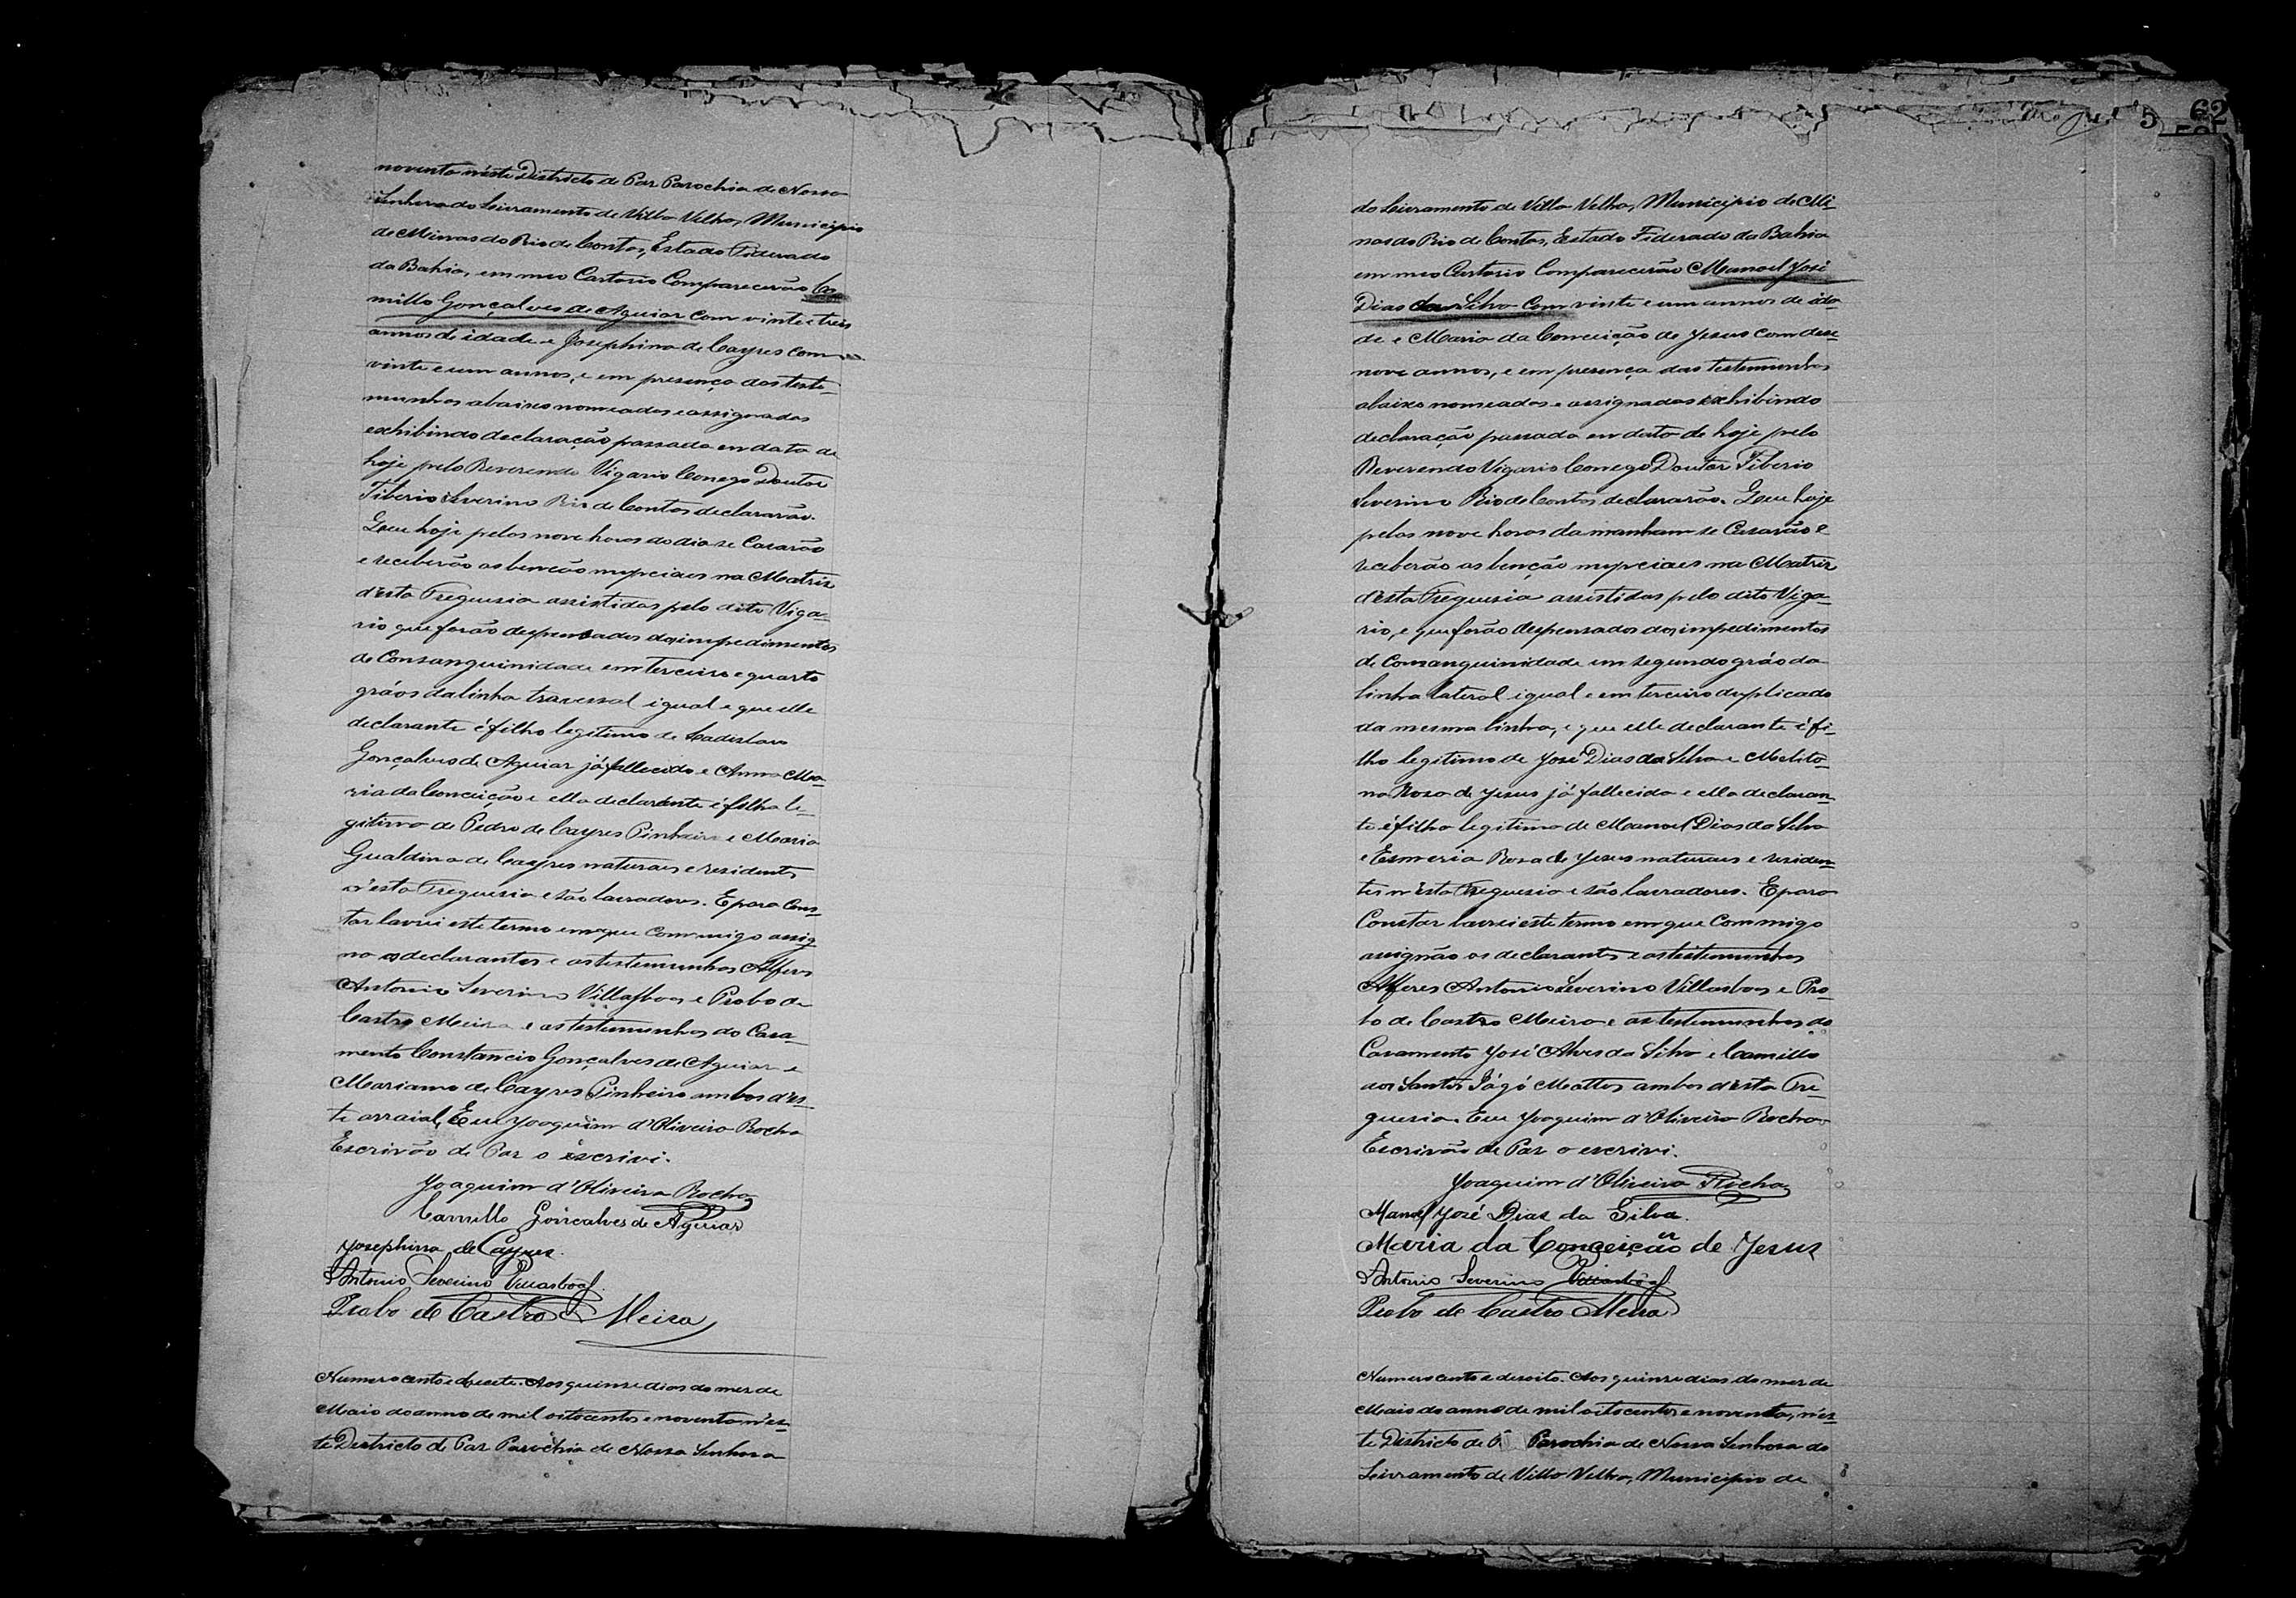 novento n'este Districto de Paz Parochia de Nossa
Senhora do Livramento de Villa Velha, Municipio
de Minas do Rio de Contas, Estado Fiderado
da Bahia, em meo Cartorio Comparecerão Ca
millo Gonçalves de Aguiar com vinte e tres
annos de idade e Josephina de Cayres com
vinte e um annos, e em presença das teste-
munhas abaixo nomeadas e assignadas
exhibindo declaração passada em data de
hoje pelo Reverendo Vigario Conego Doutor
Tiberio Severino Rio de Contas declararão.
Que hoje pelas nove horas do dia se Casarão
e receberão as benção nupciaes na Matriz
d'esta Freguesia assistidas pelo dito Viga-
rio que forão despensados dos impedimentos
de Consanguinidade em terceiro e quarto
gráos da linha traversal igual e que elle
declarante é filho legitimo de Ladislau
Gonçalves de Aguiar já fallecido e Anna Ma-
ria da Conceição e ella declarante é filha le-
gitima de Pedro de Cayres Pinheiro e Maria
Gualdina de Cayres naturaes e residentes
n'esta Freguesia e são lavradores. E para Cons-
tar lavrei este termo em que commigo assig
não os declarantes e as testemunhas Alferes
Antonio Severino Villasboas e Probo de
Castro Meira e as testemunhas do Casa-
mento Constancio Gonçalves de Aguiar e
Mariano de Cayres Pinheiro ambos d'es-
te arraial, Eu Joaquim d'Oliveira Rocha
Escrivão de Paz o escrivi.
Joaquim d'Oliveira Rocha
Camillo Gonçalves de Aguiar
Josephina de Cayres.
Antonio Severino Villasboas
Probo de Castro Meira
Numero cento e desecete. Aos quinze dias do mez de
Maio do anno de mil oitocentos e noventa n'es-
te Districto de Paz Parochia de Nossa Senhora
5 62
do Livramento de Villa Velha, Municipio de Mi-
nas do Rio de Contas, Estado Fiderado da Bahia
em meo Cartorio Comparecerão Manoel José
Dias da Silva Com vinte e um annos de ida-
de e Maria da Conceição de Jesus com deze-
nove annos, e em presença das testemunhas
abaixo nomeadas e assignadas exhibindo
declaração passada em data de hoje pelo
Reverendo Vigario Conego Doutor Tiberio
Severino Rio de Contas declararão. Que hoje
pelas nove horas da manham se Casarão e
receberão as benção nupciaes na Matriz
d'esta Freguesia assistidas pelo dito Viga-
rio, e que forão despensados dos impedimentos
de Consanguinidade em segundo gráo da
linha lateral igual e em terceiro duplicado
da mesma linha, e que elle declarante é fi-
lho legitimo de José Dias da Silva e Melito-
na Rosa de Jesus já fallecida e ella declaran-
te é filha legitima de Manoel Dias da Silva
e Esmeria Rosa de Jesus naturaes e residen-
tes n'esta Freguesia e são lavradores. E para
Constar lavrei este termo em que Commigo
assignão os declarantes e as testemunhas
Alferes Antonio Severino Villasboas e Pro-
bo de Castro Meira e as testemunhas do
Casamento José Alves da Silva e Camillo
dos Santos Mattos ambos d'esta Fre-
guesia. Eu Joaquim d'Oliveira Rocha
Escrivão de Paz o escrivi.
Joaquim d'Oliveira Rocha
Manoel José Dias da Silva.
Maria da Conceição de Jesus
Antonio Severino Villasboas
Probo de Castro Meira
Numero cento e desoito. Aos quinze dias do mez de
Maio do anno de mil oitocentos e noventa, n'es-
te Districto de Parochia de Nossa Senhora do
Livramento de Villa Velha, Municipio de